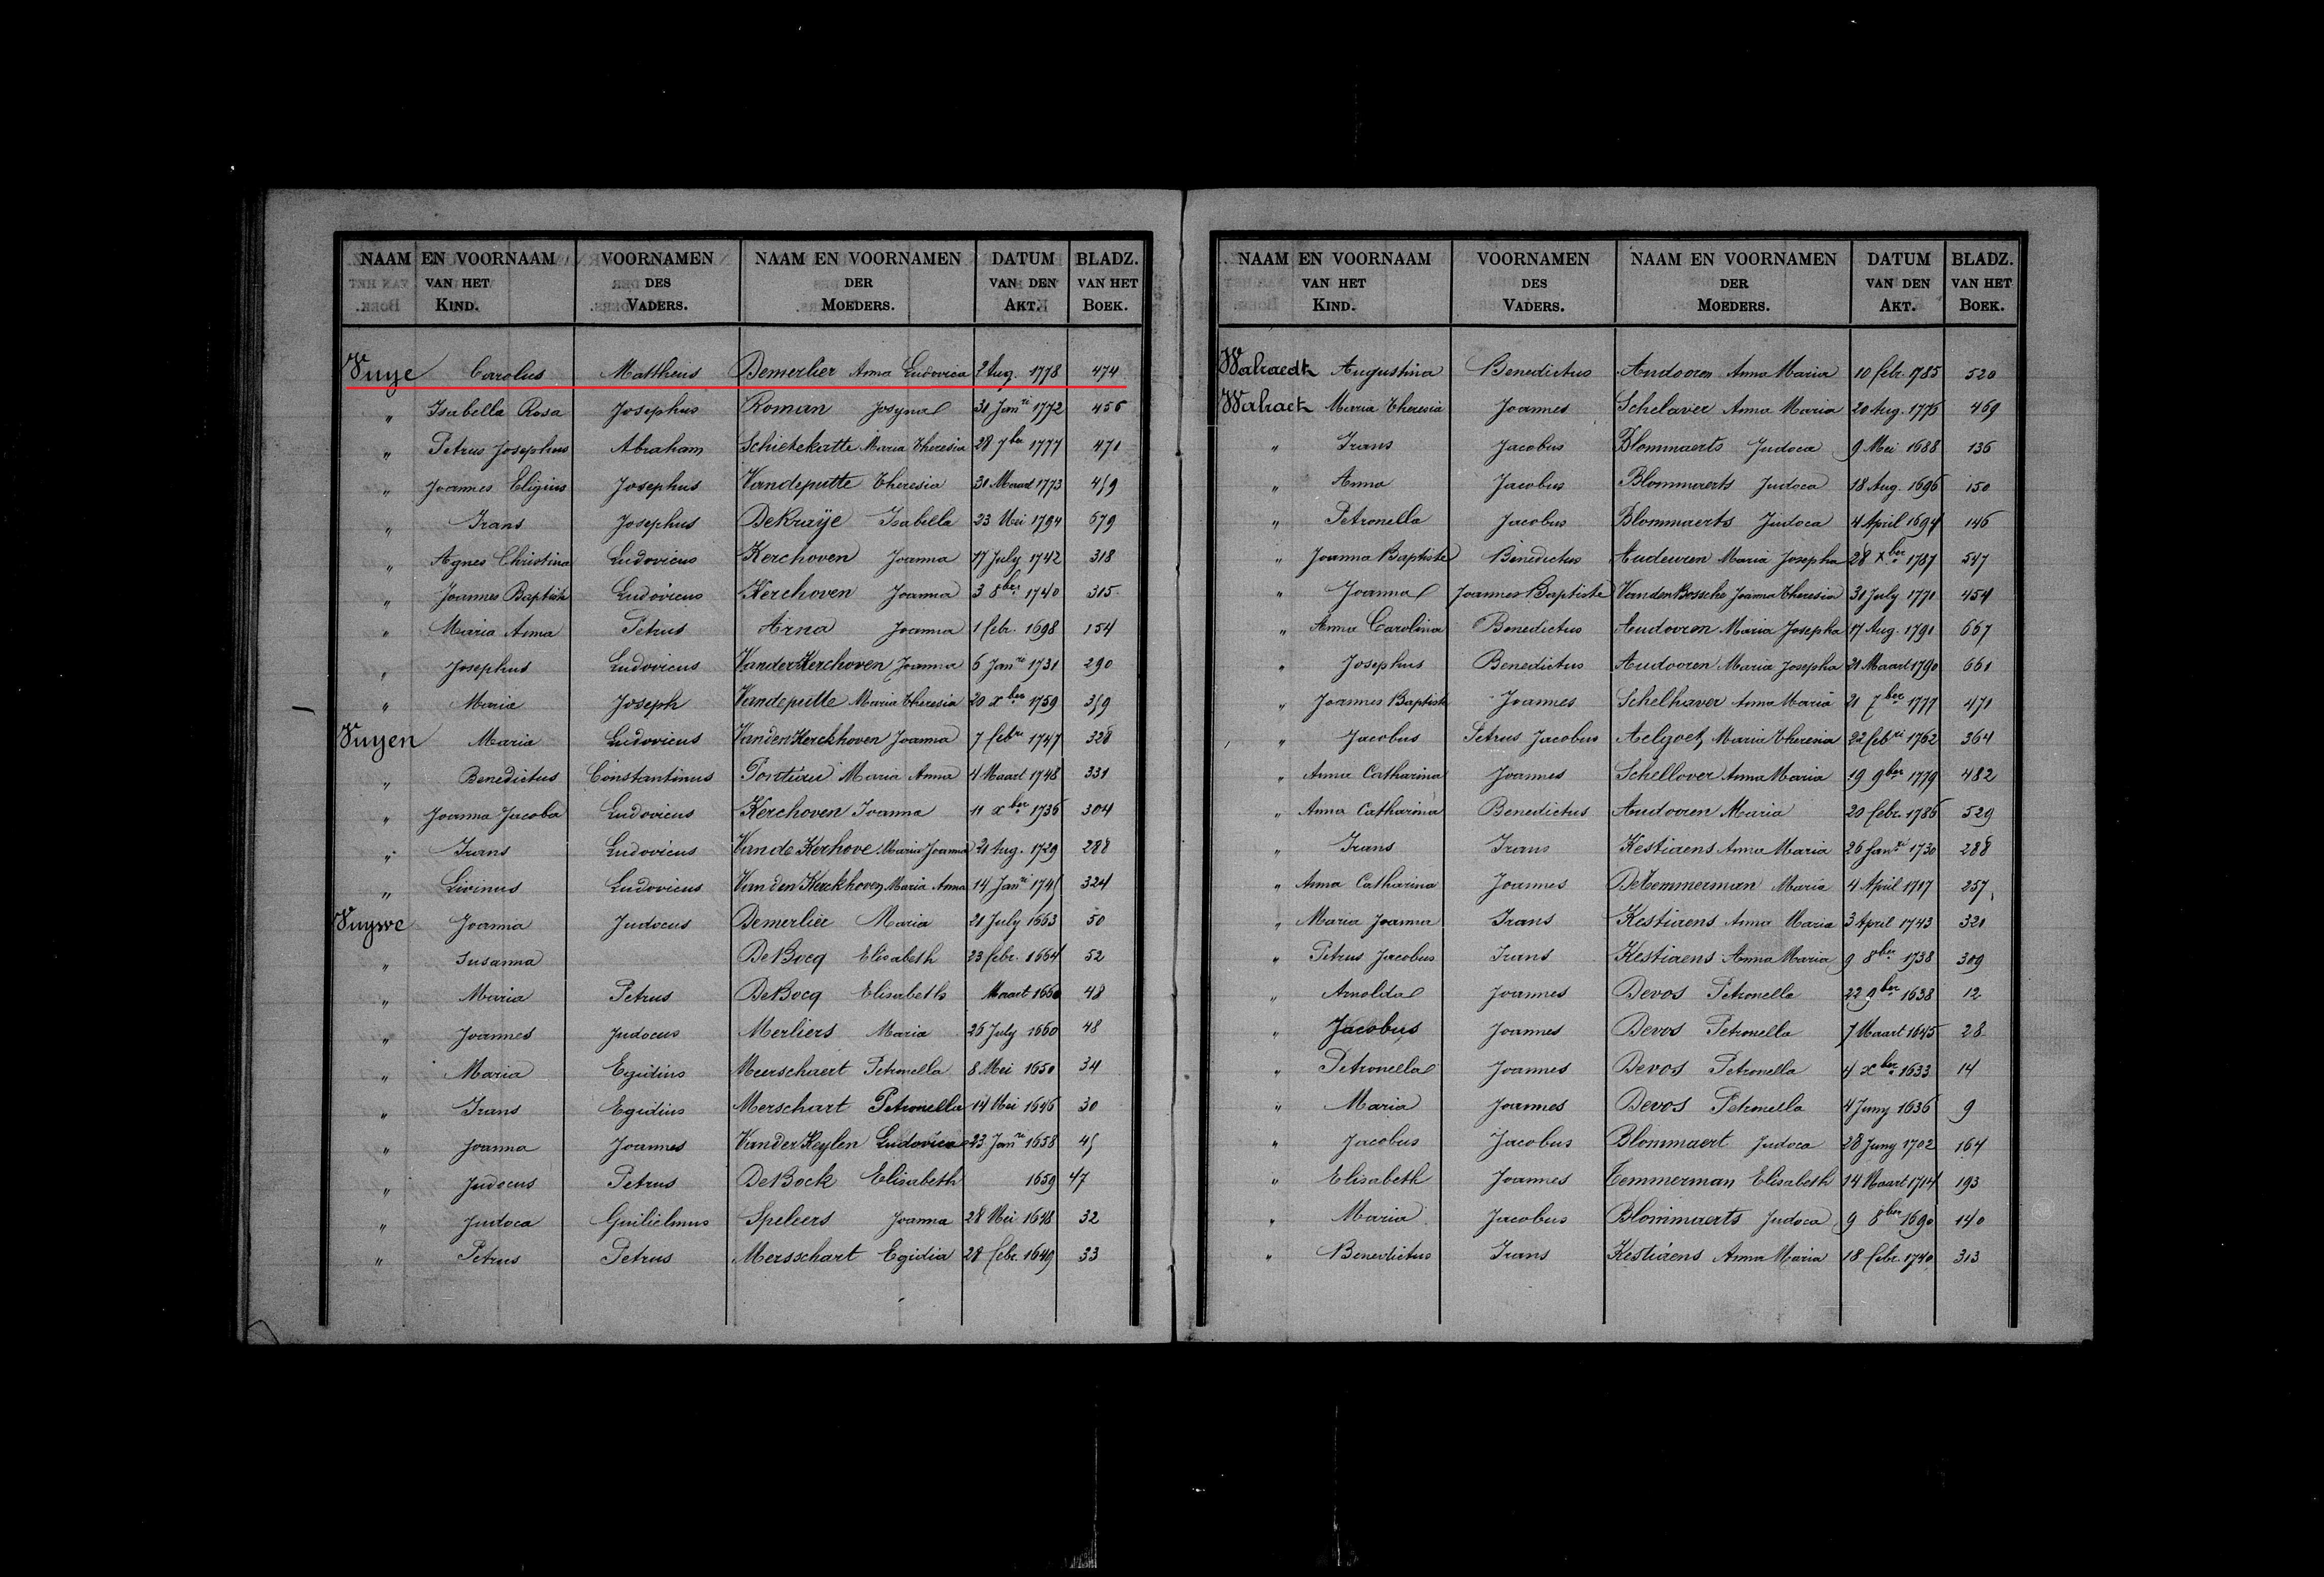 NAAM EN VOORNAAM VAN HET KIND. VOORNAMEN DES VADERS. NAAM EN VOORNAMEN DER MOEDERS. DATUM VAN DEN AKT. BLADZ. VAN HET BOEK.
Vuye Carolus Mattheus Demerlier Anna Ludovica 2 Aug. 1778 474
" Isabella Rosa Josephus Roman Josyna 31 Janri 1772 456
" Petrus Josephus Abraham Schietekatte Maria Theresia 28 7ber 1777 471
" Joannes Eligius Josephus Vandeputte Theresia 31 Maart 1773 459
" Frans Josephus DeKruÿe Isabella 23 Mei 1794 679
" Agnes Christina Ludovicus Kerchoven Joanna 17 July 1742 318
" Joannes Baptist Ludovicus Kerchoven Joanna 3 8ber 1740 315
" Maria Anna Petrus Arna Joanna 1 febr. 1698 154
" Josephus Ludovicus VanderKerchoven Joanna 6 Janri 1731 290
" Maria Joseph Vandeputte Maria Theresia 20 xber 1759 359
Vuyen Maria Ludovicus VandenKerckhoven Joanna 7 febri 1747 328
" Benedictus Constantinus Maria Anna 4 Maart 1748 331
" Joanna Jacoba Ludovicus Kerchoven Joanna 11 xber 1736 304
" Frans Ludovicus Vande Kerhove Maria Joanna 21 Aug. 1729 288
" Livinus Ludovicus Van den Kerckhoven Maria Anna 14 Janri 1745 324
Vuywe Joanna Judocus Demerlier Maria 21 July 1663 50
" Susanna DeBocq Elisabeth 23 febr. 1664 52
" Maria Petrus DeBocq Elisabeth Maart 1660 48
" Joannes Judocus Merliers Maria 26 July 1660 48
" Maria Egidius Meerschaert Petronella 8 Mei 1650 34
" Frans Egidius Merschart Petronella 14 Mei 1646 30
" Joanna Joannes VanderKeylen Ludovica 23 Janri 1658 45
" Judocus Petrus DeBock Elisabeth 1659 47
" Judoca Guilielmus Speleers Joanna 28 Mei 1648 32
" Petrus Petrus Mersschart Egidia 28 febr. 1649 33
NAAM EN VOORNAAM VAN HET KIND. VOORNAMEN DES VADERS. NAAM EN VOORNAMEN DER MOEDERS. DATUM VAN DEN AKT. BLADZ. VAN HET BOEK.
Walraedt Augustina Benedictus Audooren Anna Maria 10 febr. 1785 520
Walraet Maria Theresia Joannes Schelaver Anna Maria 20 Aug. 1776 469
" Frans Jacobus Blommaerts Judoca 9 Mei 1688 136
" Anna Jacobus Blommaerts Judoca 18 Aug. 1696 150
" Petronella Jacobus Blommaerts Judoca 4 April 1694 146
" Joanna Baptiste Benedictus Audeuren Maria Josepha 28 xber 1787 547
" Joanna Joannes Baptiste VandenBossche Joanna Theresia 31 July 1771 454
" Anna Carolina Benedictus Audooren Maria Josepha 17 Aug. 1791 667
" Josephus Benedictus Audooren Maria Josepha 21 Maart 1790 661
" Joannes Baptist Joannes Schelhaver Anna Maria 21 7ber 1777 471
" Jacobus Petrus Jacobus Aelgoet Maria Theresia 22 febri 1762 364
" Anna Catharina Joannes Schellover Anna Maria 19 9ber 1779 482
" Anna Catharina Benedictus Audooren Maria 20 febr. 1786 529
" Frans Frans Kestiaens Anna Maria 26 Janri 1730 288
" Anna Catharina Joannes DeTemmerman Maria 4 April 1717 257
" Maria Joanna Frans Kestiaens Anna Maria 3 April 1743 321
" Petrus Jacobus Frans Kestiaens Anna Maria 9 8ber 1738 309
" Arnolda Joannes Devos Petronella 22 9ber 1638 12
" Jacobus Joannes Devos Petronella 7 Maart 1645 28
" Petronella Joannes Devos Petronella 4 xber 1633 14
" Maria Joannes Devos Petronella 4 Juny 1636 9
" Jacobus Jacobus Blommaert Judoca 28 Juny 1702 164
" Elisabeth Joannes Temmerman Elisabeth 14 Maart 1714 193
" Maria Jacobus Blommaerts Judoca 9 8ber 1690 140
" Benedictus Frans Kestiaens Anna Maria 18 febr. 1740 313